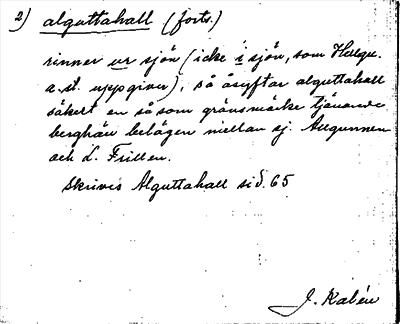 2) alguttahall (forts.)
rinner ur sjön (icke i sjön, som Hellqu.
a.st. uppgiver), så åsyftar alguttahall
säkert en så som gränsmärke tjänande
berghäll belägen mellan sj. Allgunnen
och L. Frillen.
Skrives Alguttahall sid. 65
J. Kalén